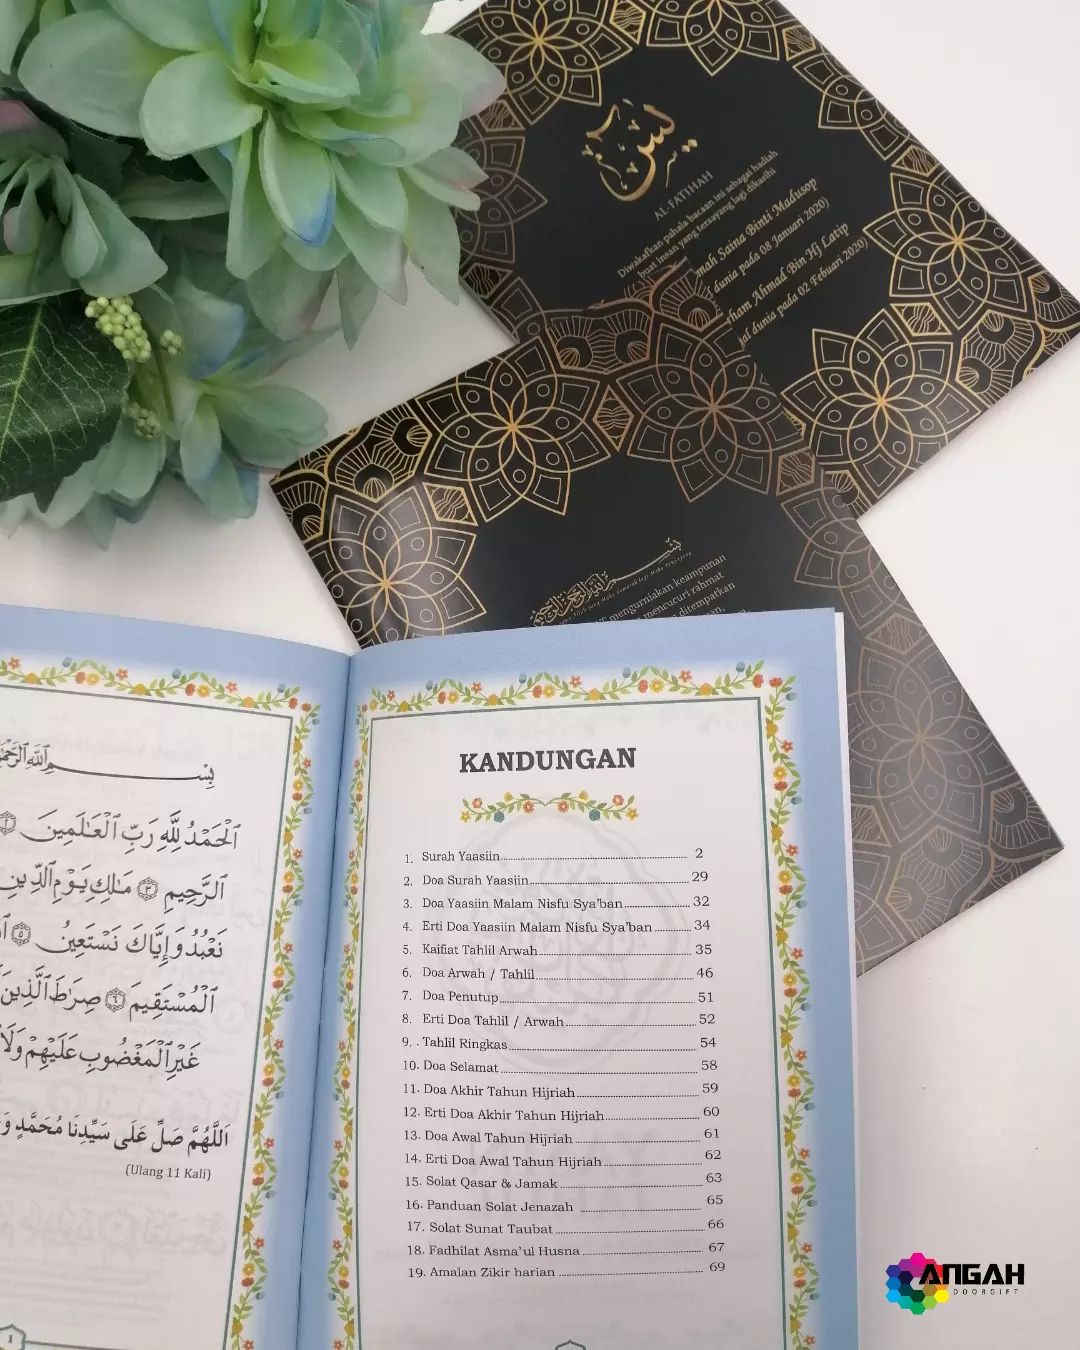 يس
AL-FATIHAH
Diwakafkan pahala bacaan ini sebagai hadiah
buat insan yang tersayang lagi dikasihi
Saina Binti Madusop
dunia pada 08 Januari 2020)
Ahmad Bin Hj Latip
dunia pada 02 Febuari 2020)
mengurniakan keampunan
mencucuri rahmat
ditempatkan
بِسْمِ اللَّهِ
اَلْحَمْدُ لِلَّهِ رَبِّ الْعَالَمِينَ ٢
الرَّحِيمِ ٣ مَالِكِ يَوْمِ الدِّينِ
نَعْبُدُ وَإِيَّاكَ نَسْتَعِينُ ٥
الْمُسْتَقِيمَ ٦ صِرَاطَ الَّذِينَ
غَيْرِ الْمَغْضُوبِ عَلَيْهِمْ وَلَا
اَللَّهُمَّ صَلِّ عَلَى سَيِّدِنَا مُحَمَّدٍ
(Ulang 11 Kali)
1
KANDUNGAN
1. Surah Yaasiin 2
2. Doa Surah Yaasiin 29
3. Doa Yaasiin Malam Nisfu Sya'ban 32
4. Erti Doa Yaasiin Malam Nisfu Sya'ban 34
5. Kaifiat Tahlil Arwah 35
6. Doa Arwah / Tahlil 46
7. Doa Penutup 51
8. Erti Doa Tahlil / Arwah 52
9. . Tahlil Ringkas 54
10. Doa Selamat 58
11. Doa Akhir Tahun Hijriah 59
12. Erti Doa Akhir Tahun Hijriah 60
13. Doa Awal Tahun Hijriah 61
14. Erti Doa Awal Tahun Hijriah 62
15. Solat Qasar & Jamak 63
16. Panduan Solat Jenazah 65
17. Solat Sunat Taubat 66
18. Fadhilat Asma'ul Husna 67
19. Amalan Zikir harian 69
ANGAH
DOORGIFT